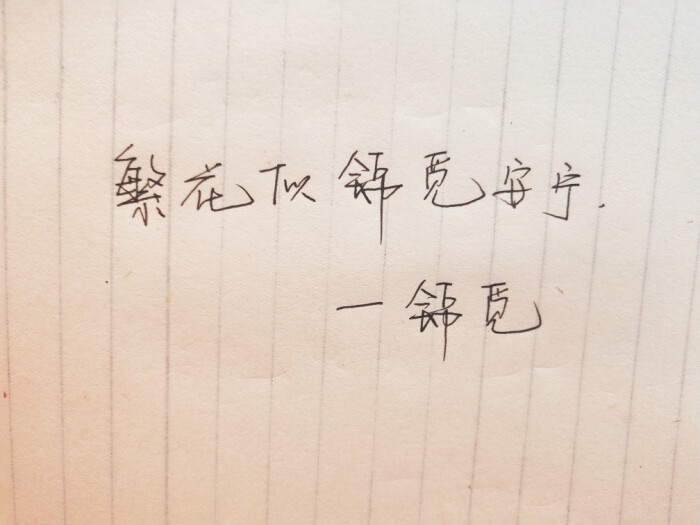 繁花似锦觅安宁.
—锦觅